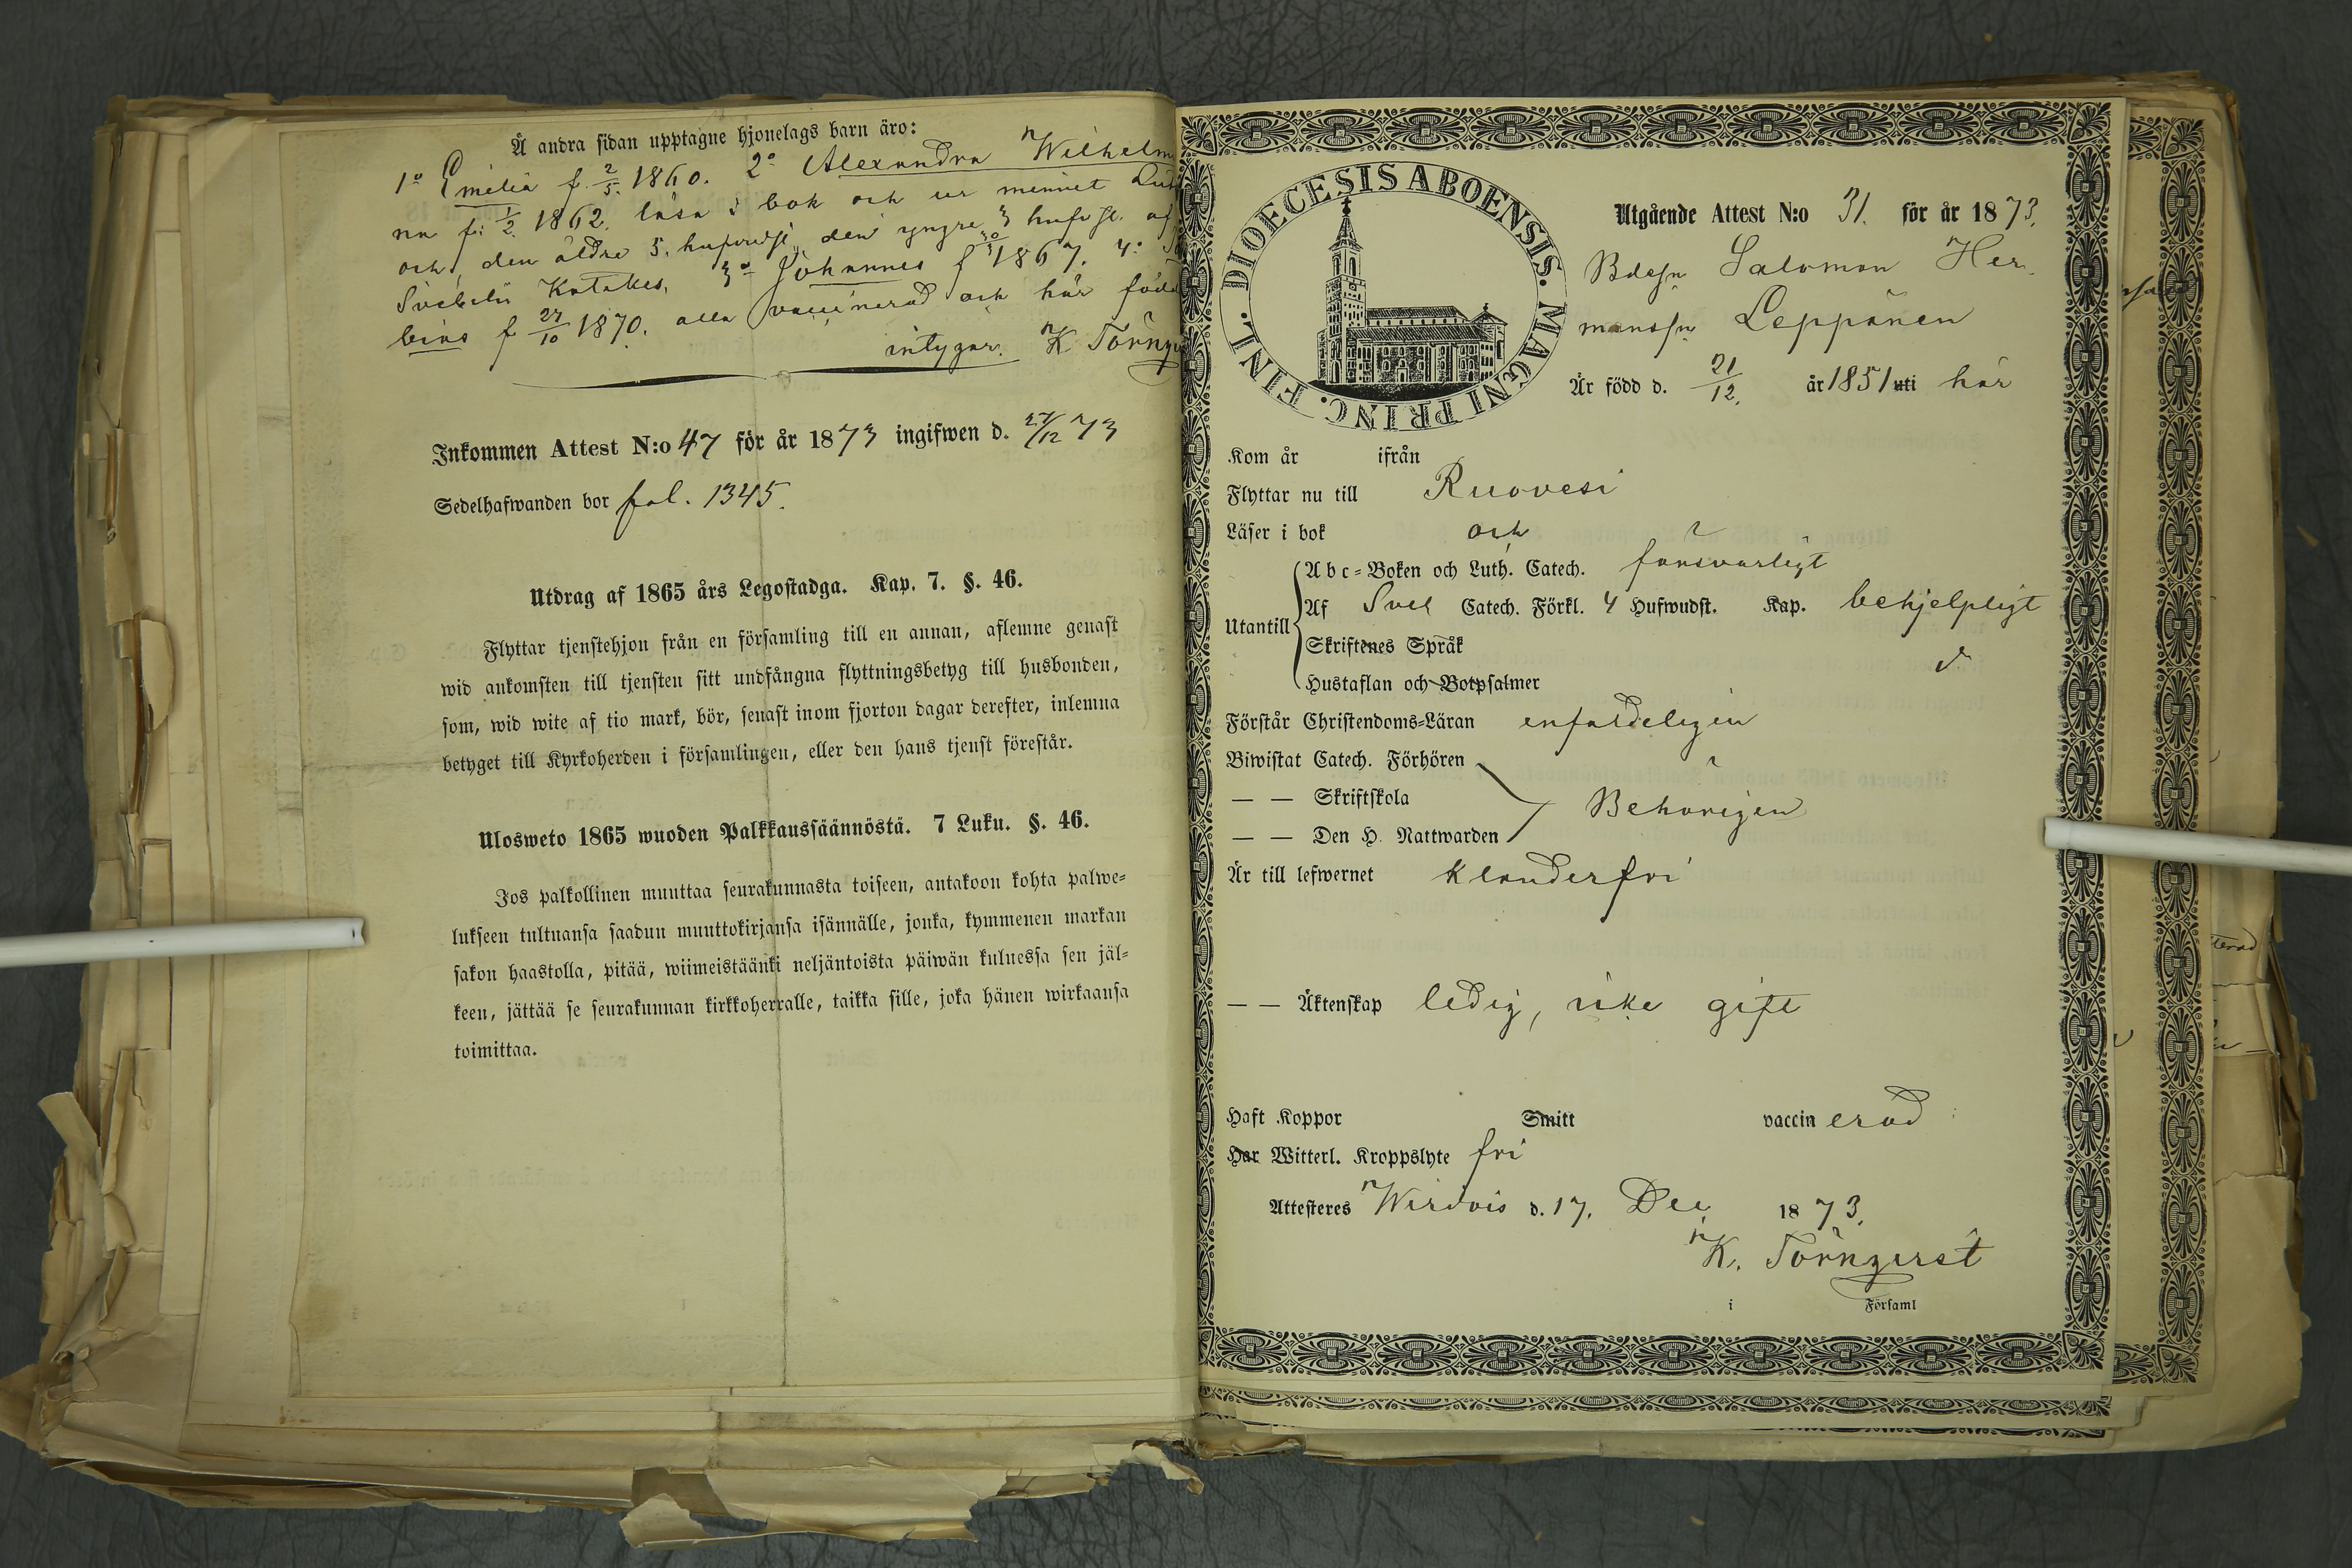 Å andra sidan upptagne hjonelags barn äro:
1o Emilia f. 2/5. 1860. 2o Alexandra Wilhelmi
na f: 1/2. 1862. läsa i bok och ur minnet
och, den äldre 5. hufvudst, den yngre 3 hufvst. af
Svebelii Katekes, 3o Johannes f 30/3 1867. 4o
bias f 27/10 1870. alla vaccinerad och här född
intygar. K Törnqv
Inkommen Attest N:o 47 för år 1873 ingifwen d. 27/12 73
Sedelhafwanden bor fol. 1345.
Utdrag af 1865 års Legostadga. Kap. 7. §. 46.
Flyttar tjenstehjon från en församling till en annan, aflemne genast
wid ankomsten till tjensten sitt undfångna flyttningsbetyg till husbonden,
som, wid wite af tio mark, bör, senast inom fjorton dagar derefter, inlemna
betyget till Kyrkoherden i församlingen, eller den hans tjenst förestår.
Ulosweto 1865 wuoden Palkkaussäännöstä. 7 Luku. §. 46.
Jos palkollinen muuttaa seurakunnasta toiseen, antakoon kohta palwe-
lukseen tultuansa saadun muuttokirjansa isännälle, jonka, kymmenen markan
sakon haastolla, pitää, wiimeistäänki neljäntoista päiwän kuluessa sen jäl-
keen, jättää se seurakunnan kirkkoherralle, taikka sille, joka hänen wirkaansa
toimittaa.
DIOECESIS ABOENSIS. MAGNI PRINC. FINL.
Utgående Attest N:o 31. för år 1873.
Bdesn Salomon Her-
manssn Leppänen
Är född d. 21/12. år 1851 uti här
Kom år ifrån
Flyttar nu till Ruovesi
Läser i bok och
Utantill
Abc-Boken och Luth. Catech. försvarligt
Af Sveb Catech. Förkl. 4 Hufwudst. Kap. behjelpligt
Skriftenes Språk
Hustaflan och Botpsalmer d
Förstår Christendoms-Läran enfaldeligen
Biwistat Catech. Förhören
— — Skriftskola Behörigen
— — Den H. Nattwarden
Är till lefwernet klanderfri
— — Äktenskap ledig, icke gift
Haft Koppor Smitt vaccinerad
Har Witterl. Kroppslyte fri
Attesteres Wirdois d. 17. Dec 1873.
K. Törnqvist
i Församl